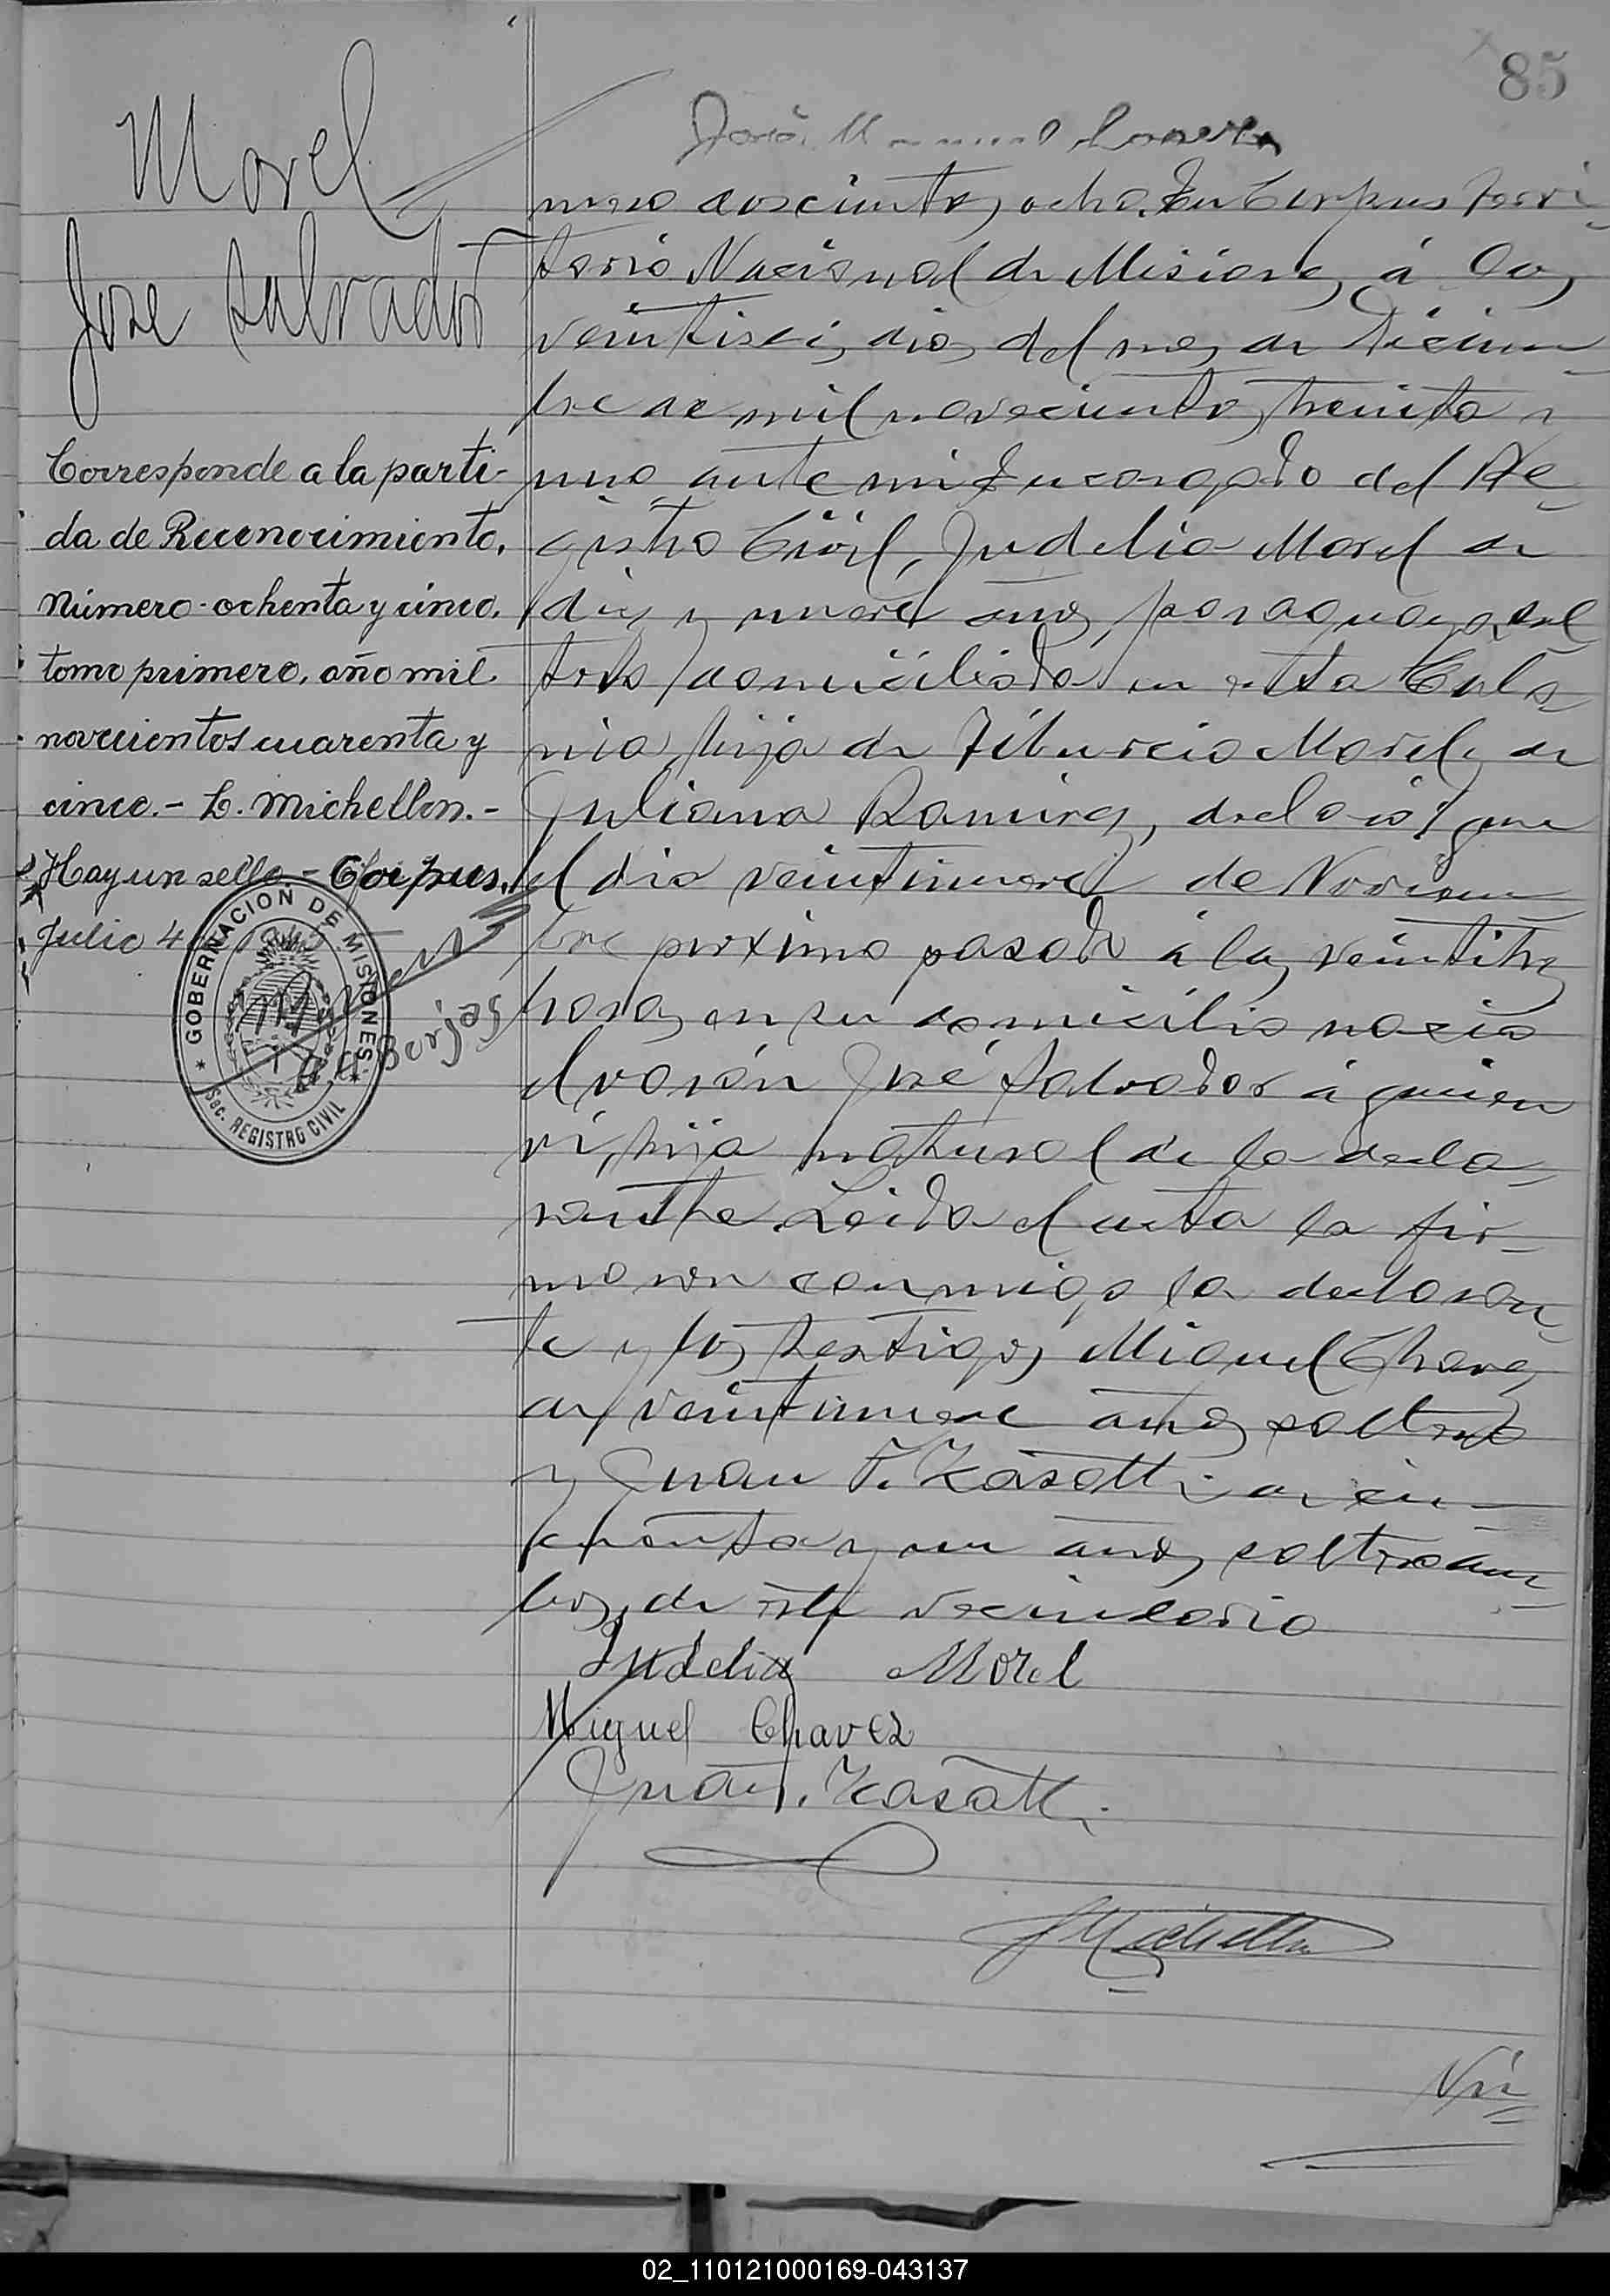 85
Morel
Jose Salvador
Corresponde a la parti-
da de Reconocimiento,
Número ochenta y cinco,
tomo primero, año mil
novecientos cuarenta y
cinco.- L. Michellon.-
Hay un sello - Corpus,
Julio 4
GOBERNACION DE MISIONES
Sec. REGISTRO CIVIL
Borjas
José Manuel
mero doscientos ocho. En Corpus Terri-
torio Nacional de Misiones, á los
veintiseis dias del mes de Diciem
bre de mil novecientos treinta y
uno ante mi Encargado del Re-
gistro Civil, Judelia Morel de
diez y nueve años, paraguaya, sol
tera, domiciliada en esta Colo-
nia, hija de Tiburcio Morel y de
Juliana Ramirez, declaró: que
el dia veintinueve de Noviem
bre proximo pasado á las veintitres
horas en su domicilio nació
el varón José Salvador á quien
ví, hijo natural de la decla-
rante. Leida el acta la fir-
maron conmigo la declaran-
te y los testigos Miguel Chavez
de veintinueve años, soltero
y Juan F. Kasatti de cin-
cuenta y un años, soltero am-
bos de este vecindario
Judelia Morel
Miguel Chavez
Juan F. Kasatti
Michellon
Nú
02_110121000169-043137